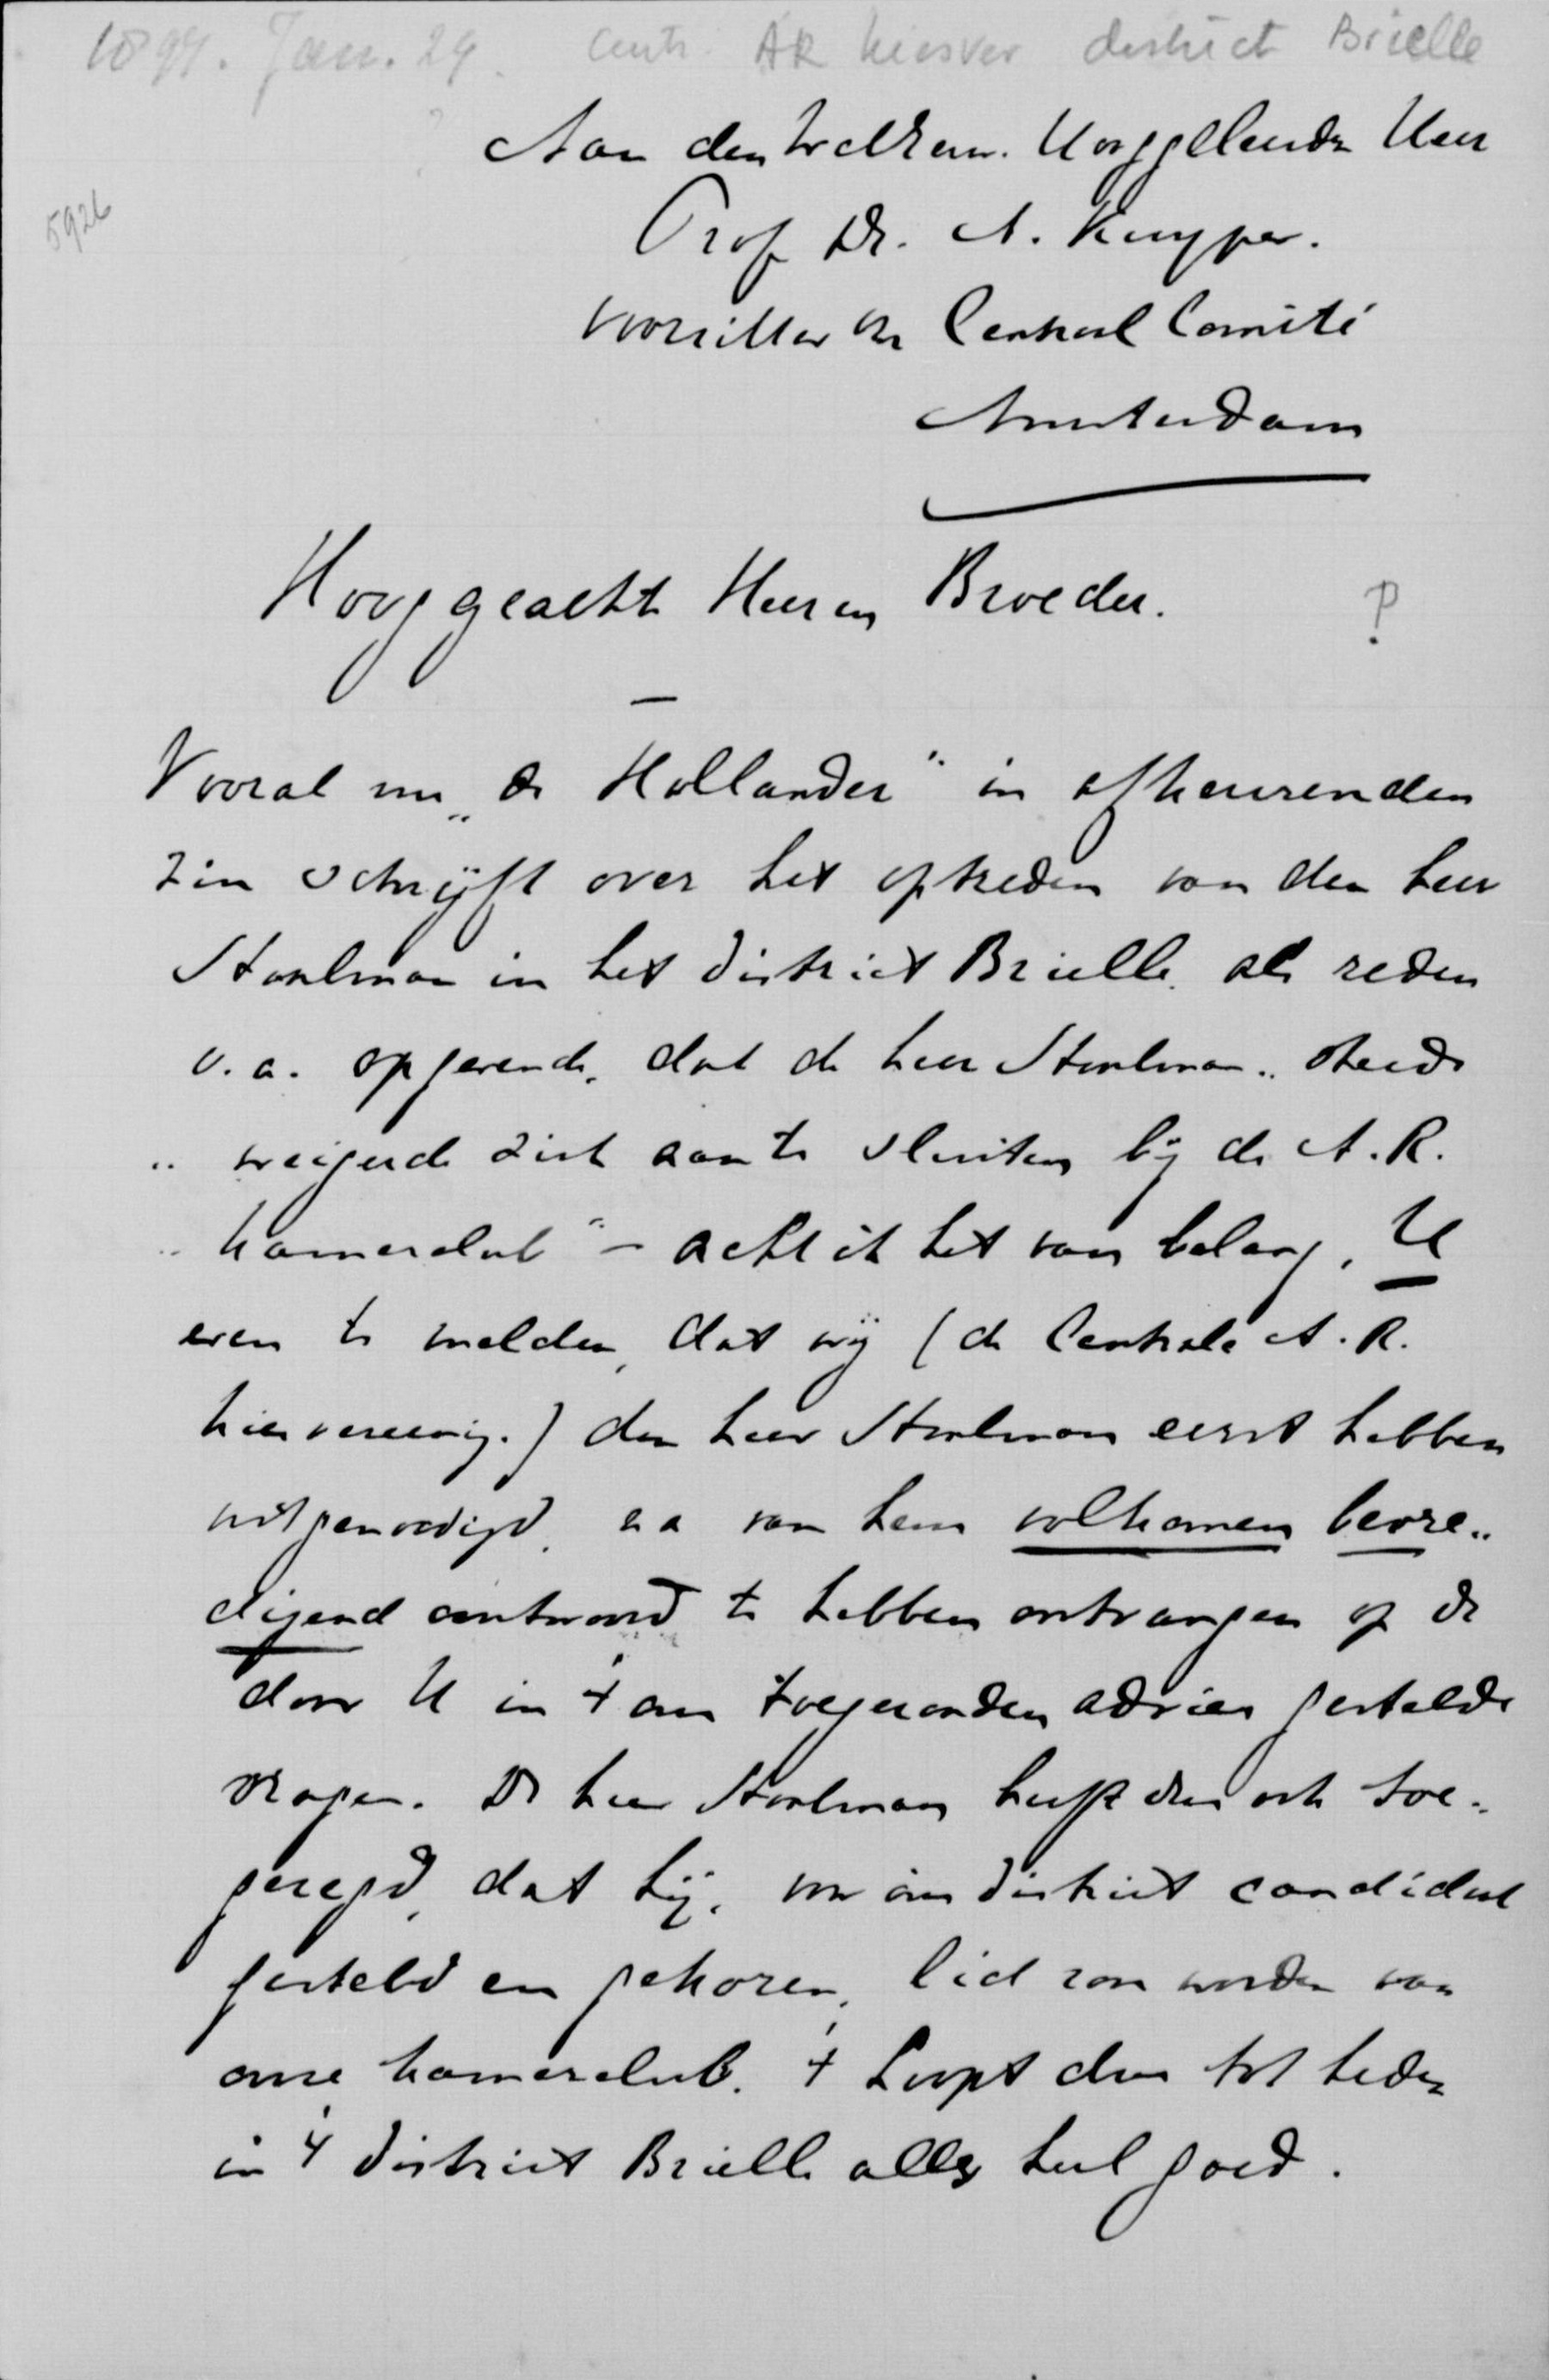 1897. Jan. 29. Centr. AR kiesver district Brielle
5926
Aan den WelEerw. Hooggeleerden Heer
Prof Dr. A. Kuyper.
Voorzitter vn Centraal Comité
Amsterdam
Hooggeachte Heer en Broeder.
?
Vooral nu „de Hollander" in afkeurenden
zin schrijft over het optreden van den heer
Staalman in het district Brielle, als reden
o.a. opgevende, dat de heer Staalman „steeds
„weigerde zich aan te sluiten bij de A.R.
„kamerclub" – acht ik het van belang, U
even te melden, dat wij (de Centrale A.R.
kiesvereenig.) den heer Staalman eerst hebben
uitgenoodigd, na van hem volkomen bevre„
digend antwoord te hebben ontvangen op de
door U in 't ons toegezonden advies gestelde
vragen. De heer Staalman heeft dus ook toe„
gezegd, dat hij, in ons district candidaat
gesteld en gekozen, lid zou worden van
onze kamerclub. 't Loopt dus tot heden
in 't district Brielle alles heel goed.